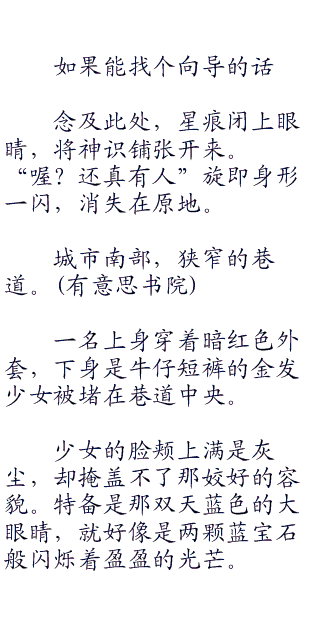 如果能找个向导的话
念及此处，星痕闭上眼
睛，将神识铺张开来。
“喔？还真有人”旋即身形
一闪，消失在原地。
城市南部，狭窄的巷
道。(有意思书院)
一名上身穿着暗红色外
套，下身是牛仔短裤的金发
少女被堵在巷道中央。
少女的脸颊上满是灰
尘，却掩盖不了那姣好的容
貌。特备是那双天蓝色的大
眼睛，就好像是两颗蓝宝石
般闪烁着盈盈的光芒。